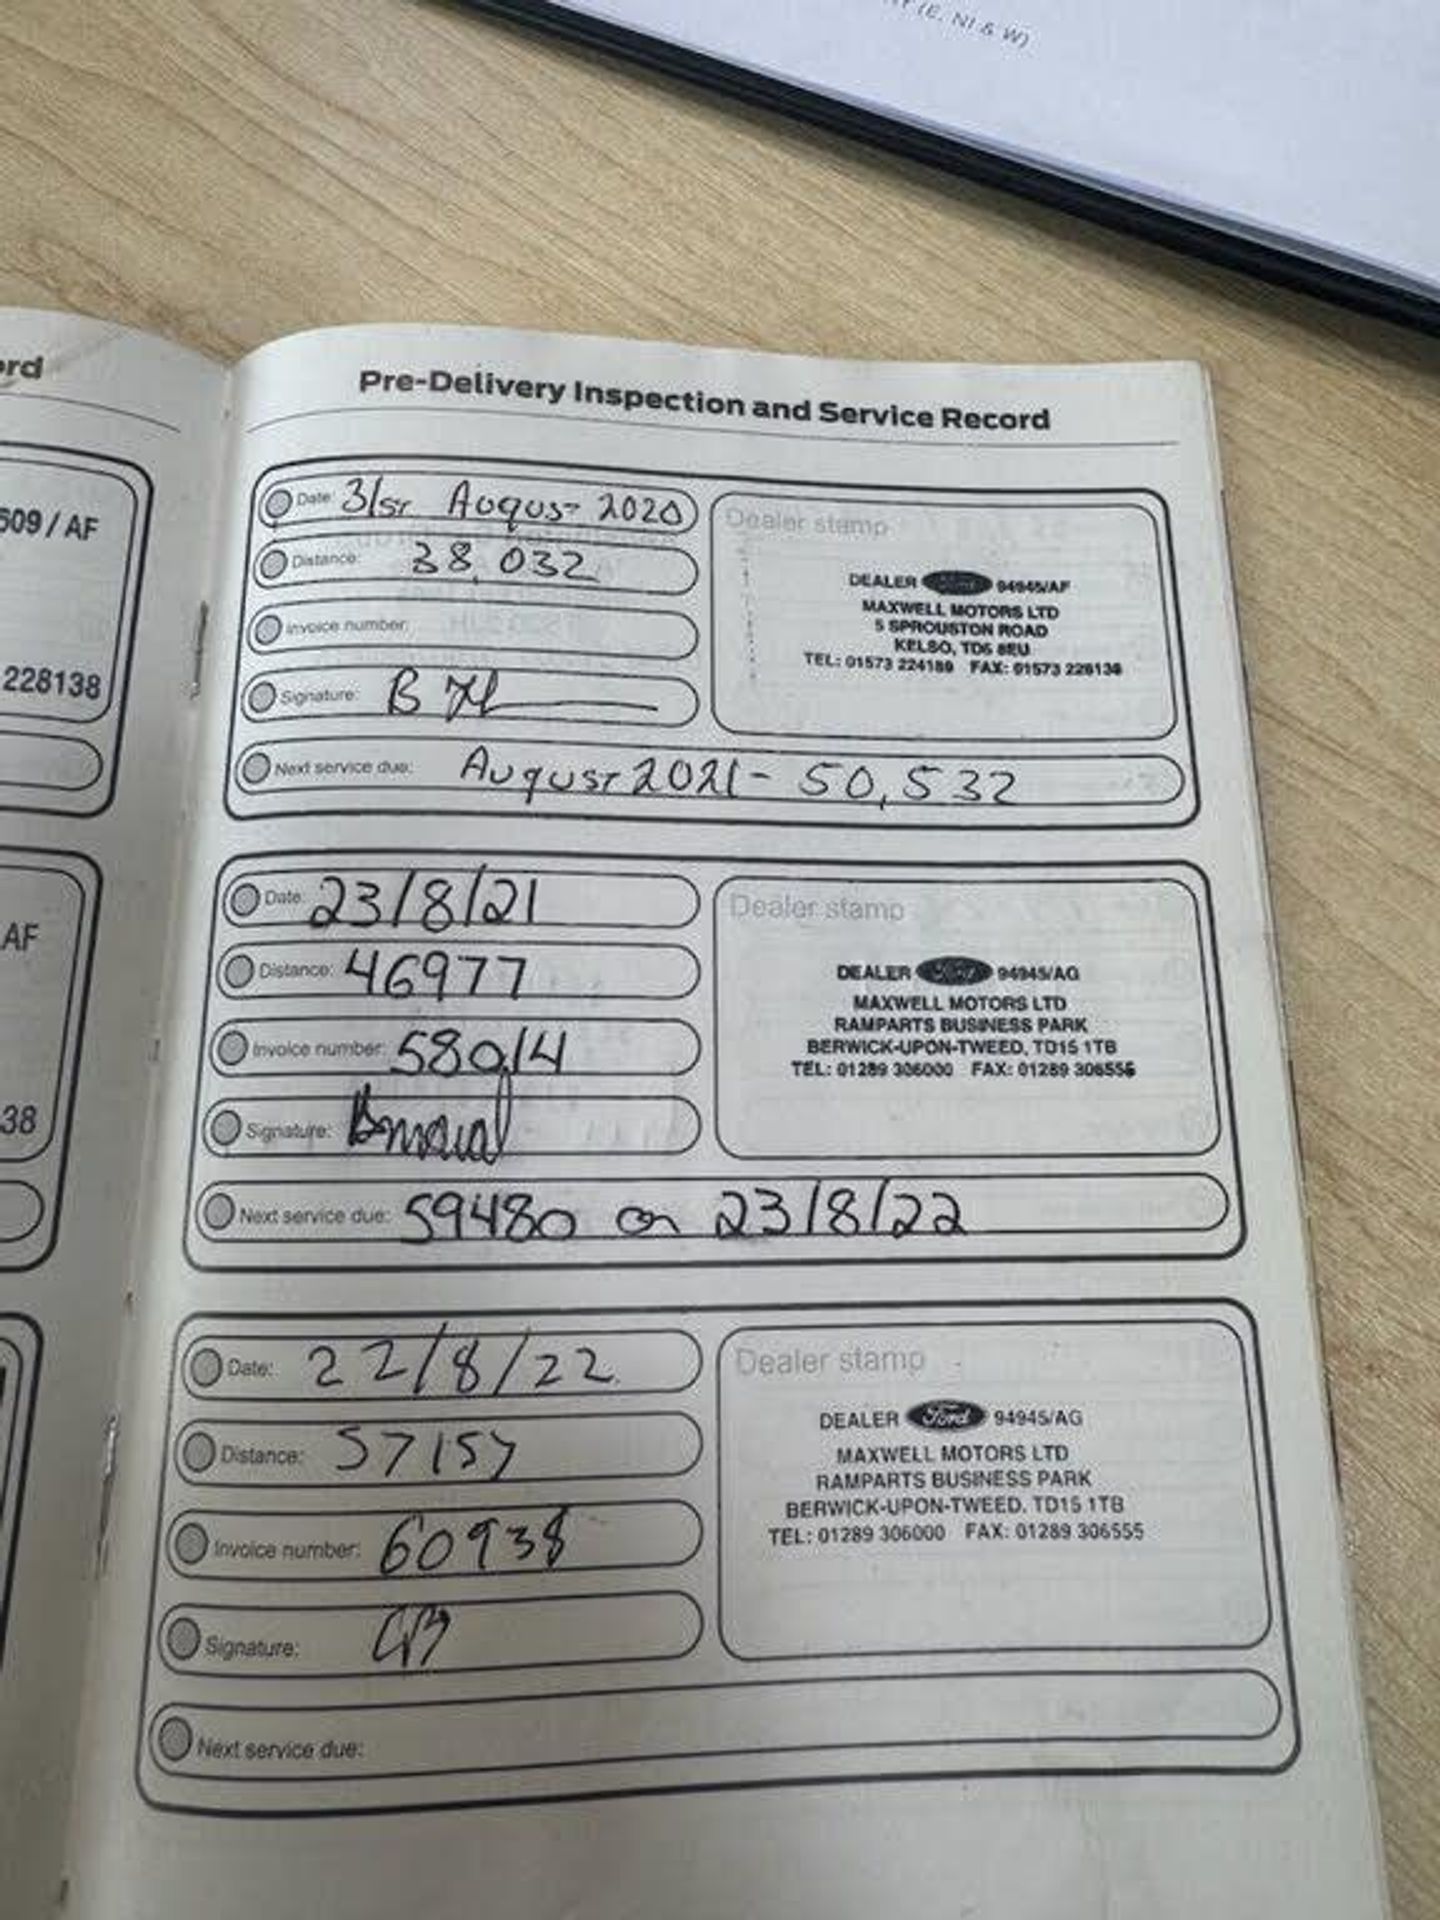 Y (E, NI & W)
ord
509 / AF
228138
AF
38
Pre-Delivery Inspection and Service Record
Date: 31st August 2020
Distance: 38,032
Invoice number:
Signature: B
Next service due: August 2021 - 50,532
Dealer stamp
DEALER Ford 94945/AF
MAXWELL MOTORS LTD
5 SPROUSTON ROAD
KELSO, TD5 8EU
TEL: 01573 224189 FAX: 01573 228138
Date: 23/8/21
Distance: 46977
Invoice number: 58014
Signature:
Next service due: 59480 on 23/8/22
Dealer stamp
DEALER Ford 94945/AG
MAXWELL MOTORS LTD
RAMPARTS BUSINESS PARK
BERWICK-UPON-TWEED, TD15 1TB
TEL: 01289 306000 FAX: 01289 306555
Date: 22/8/22
Distance: 57157
Invoice number: 60938
Signature:
Next service due:
Dealer stamp
DEALER Ford 94945/AG
MAXWELL MOTORS LTD
RAMPARTS BUSINESS PARK
BERWICK-UPON-TWEED. TD15 1TB
TEL: 01289 306000 FAX: 01289 306555